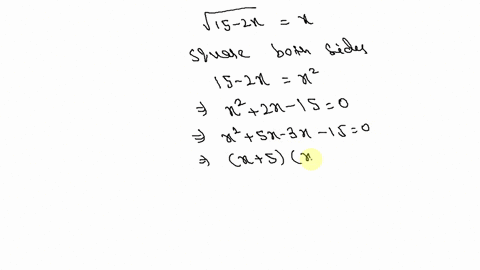 √15-2x = x
square both sides
15-2x = x²
⇒ x²+2x-15=0
⇒ x²+5x-3x-15=0
⇒ (x+5) (x